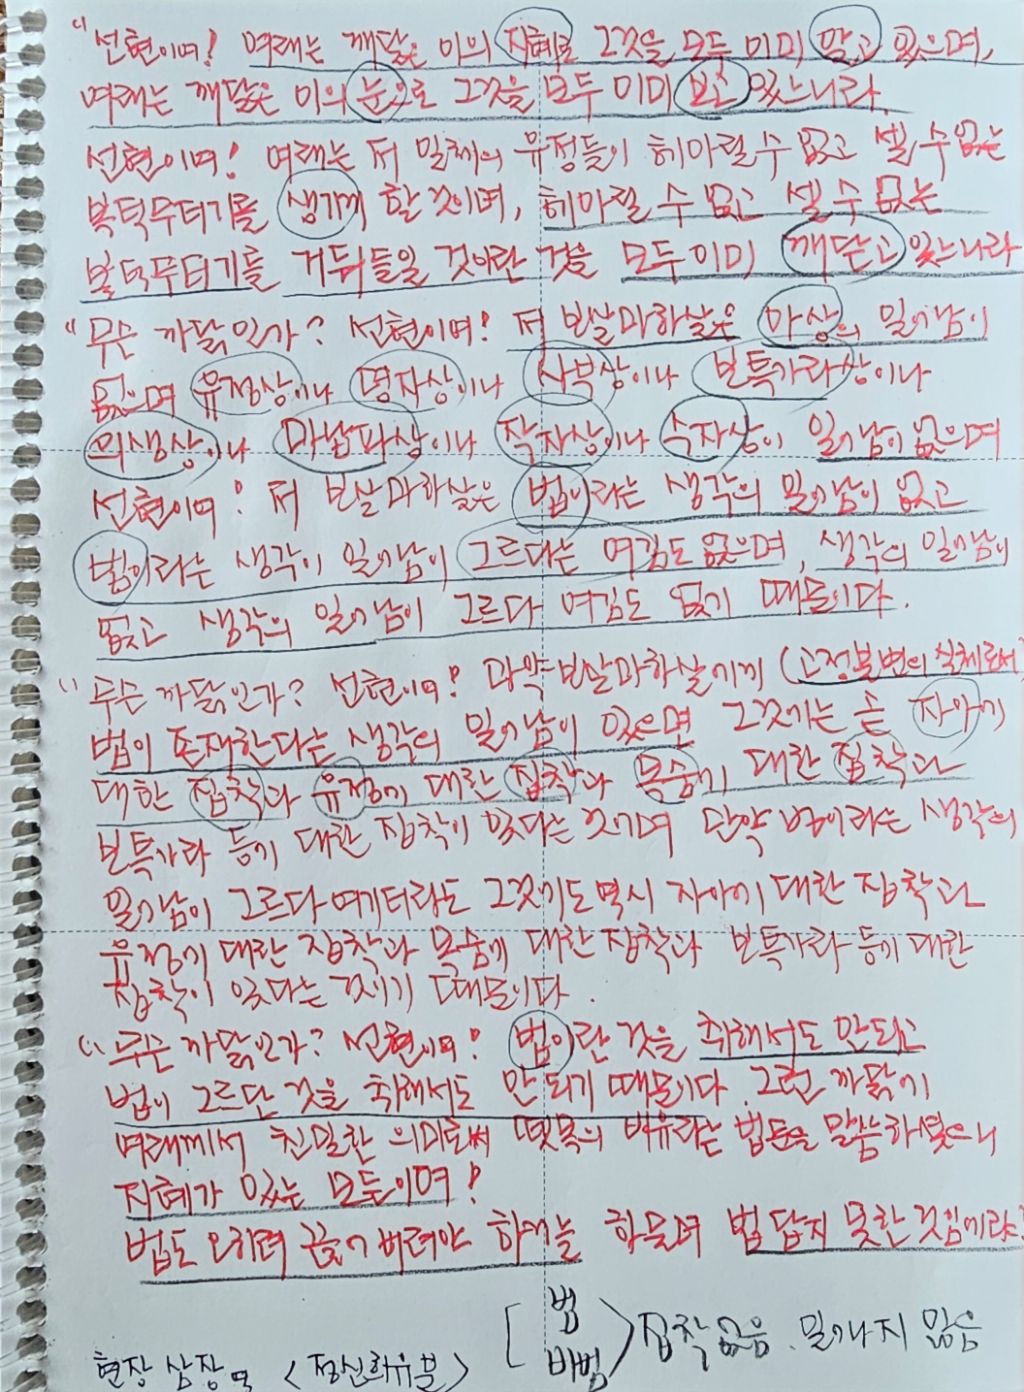 "선현이여! 여래는 깨달은 이의 지혜로 그것을 모두 이미 알고 있으며,
여래는 깨달은 이의 눈으로 그것을 모두 이미 보고 있느니라.
선현이여! 여래는 저 일체의 유정들이 헤아릴 수 없고 셀 수 없는
복덕무더기를 생기게 할 것이며, 헤아릴 수 없고 셀 수 없는
복덕무더기를 거둬들일 것이란 것을 모두 이미 깨닫고 있느니라
"무슨 까닭인가? 선현이여! 저 보살마하살은 아상의 일어남이
없으며 유정상이나 명자상이나 사부상이나 보특가라상이나
의생상이나 마납파상이나 작자상이나 수자상이 일어남이 없으며
선현이여! 저 보살마하살은 법이라는 생각의 일어남이 없고
법이라는 생각이 일어남이 그르다는 여김도 없으며, 생각의 일어남이
없고 생각의 일어남이 그르다 여김도 없기 때문이다.
"무슨 까닭인가? 선현이여! 만약 보살마하살에게 (고정불변의 실체로서)
법이 존재한다는 생각의 일어남이 있으면 그것에는 곧 자아에
대한 집착과 유정에 대한 집착과 목숨에 대한 집착과
보특가라 등에 대한 집착이 있다는 것이며 만약 법이라는 생각의
일어남이 그르다 여기더라도 그것에도 역시 자아에 대한 집착과
유정에 대한 집착과 목숨에 대한 집착과 보특가라 등에 대한
집착이 있다는 것이기 때문이다.
"무슨 까닭인가? 선현이여! 법이란 것을 취해서도 안되고
법이 그르단 것을 취해서도 안 되기 때문이다. 그런 까닭에
여래께서 친밀한 의미로써 뗏목의 비유라는 법문을 말씀하셨으니
지혜가 있는 모든이여!
법도 오히려 끊어 버려야 하거늘 하물며 법 답지 못한 것임에랴!
[ 법
비법 > 집착없음. 일어나지 않음
현장 삼장 역 <정신희유분>